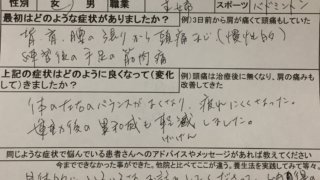 性別 女 男 職業 主婦 スポーツ バドミントン
最初はどのような症状がありましたか? 例)3日前から肩が痛くて頭痛もしていた
背、首、腰の張りから頭痛など(慢性的)
練習後の手足の筋肉痛
上記の症状はどのように良くなって(変化して)きましたか? 例)頭痛は治療後に無くなり、肩の痛みも改善してきた
体の左右のバランスがよくなり、疲れにくくなった。
運動後の違和感も軽減しました。
けいげん
同じような症状で悩んでいる患者さんへのアドバイスやメッセージがあれば教えてください
今までできなかった事ができた。他院と比べてここが違う。養生法を実践してみて等々。